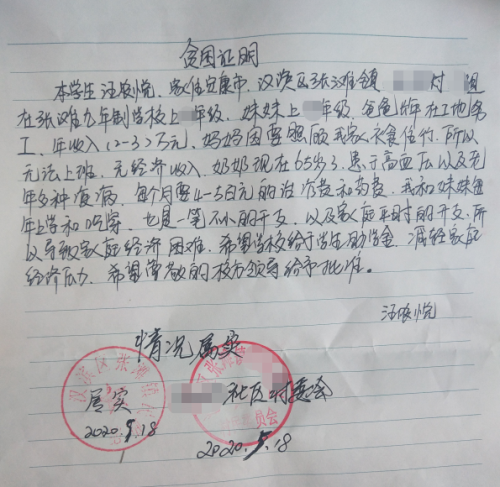 贫困证明
本学生汪依悦,家住安康市,汉滨区张滩镇 村 组
在张滩九年制学校上 年级,妹妹上 年级,爸爸昨在工地务
工,年收入(2-3)万元,妈妈因要照顾我家衣食住行,所以
无法上班,无经济收入,奶奶现在65岁了,患了高血压以及老
年各种疾病,每个月要4-5百元的治疗费和药费,我和妹妹每
年上学和吃穿,也是一笔不小的开支,以及家庭平时的开支,所
以导致家庭经济困难,希望学校给于学生助学金,减轻家庭
经济压力,希望尊敬的校方领导给予批准。
汪依悦
情况属实
汉滨区张滩
属实
社区村委会
员会
2020.5.18
2020.5.18